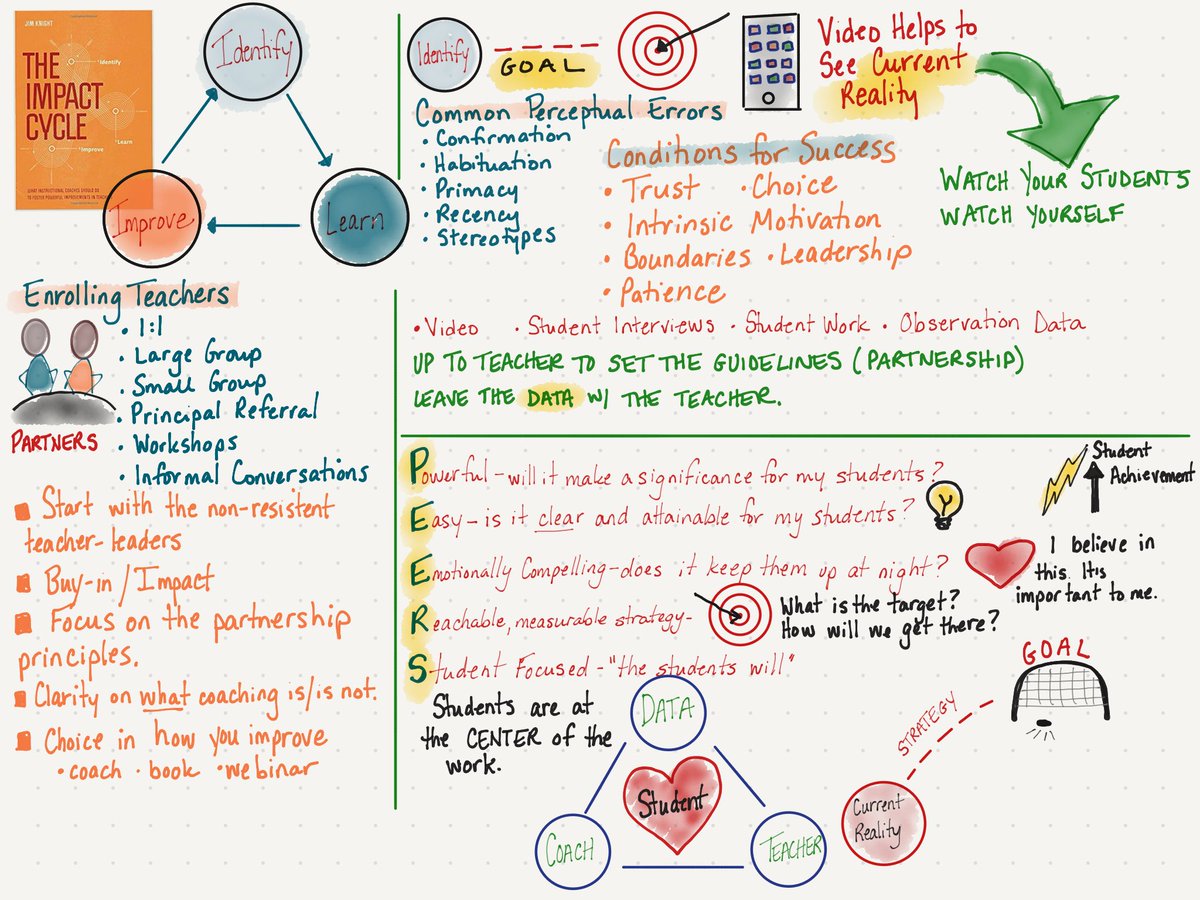 JIM KNIGHT
THE
IMPACT
CYCLE
Identify
Learn
Improve
WHAT INSTRUCTIONAL COACHES SHOULD DO
TO FOSTER POWERFUL IMPROVEMENTS IN TEACHING
Identify
Learn
Improve
Enrolling Teachers
• 1:1
• Large Group
• Small Group
• Principal Referral
• Workshops
• Informal Conversations
PARTNERS
Start with the non-resistent
teacher-leaders
Buy-in / Impact
Focus on the partnership
principles.
Clarity on what coaching is/is not.
Choice in how you improve
• coach • book • webinar
Identify
GOAL
Video Helps to
See Current
Reality
WATCH YOUR STUDENTS
WATCH YOURSELF
Common Perceptual Errors
• Confirmation
• Habituation
• Primacy
• Recency
• Stereotypes
Conditions for Success
• Trust • Choice
• Intrinsic Motivation
• Boundaries • Leadership
• Patience
• Video • Student Interviews • Student Work • Observation Data
UP TO TEACHER TO SET THE GUIDELINES (PARTNERSHIP)
LEAVE THE DATA W/ THE TEACHER.
Powerful - will it make a significance for my students?
Student
Achievement
Easy - is it clear and attainable for my students?
Emotionally Compelling - does it keep them up at night?
I believe in
this. It's
important to me.
Reachable, measurable strategy -
What is the target?
How will we get there?
Student Focused - "the students will"
Students are at
the CENTER of the
work.
DATA
Student
COACH
TEACHER
Current
Reality
STRATEGY
GOAL